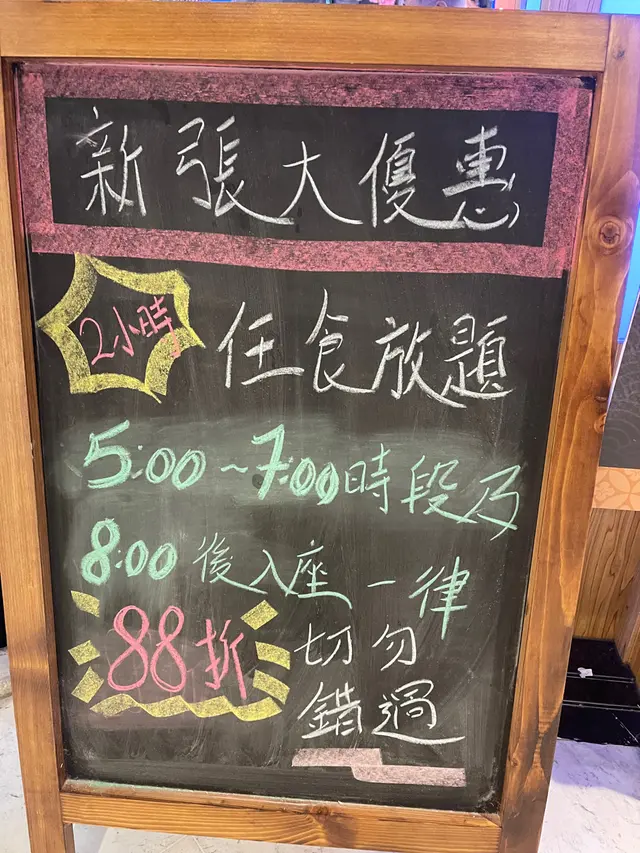 新張大優惠
2小時 任食放題
5:00~7:00時段及
8:00後入座一律
88折 切勿
錯過